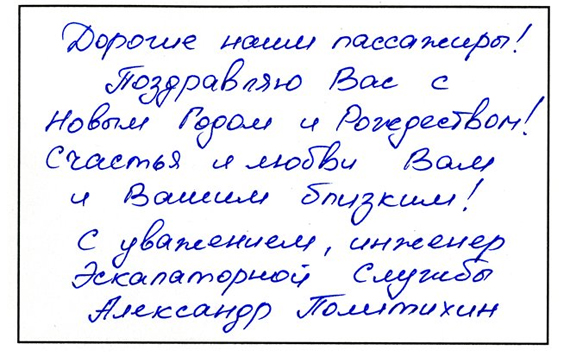 Дорогие наши пассажиры!
Поздравляю Вас с
Новым Годом и Рождеством!
Счастья и любви Вам
и Вашим близким!
С уважением, инженер
Эскалаторной Службы
Александр Политихин